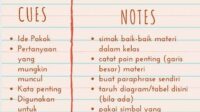 CUES
NOTES
• Ide Pokok
• Pertanyaan
yang
mungkin
muncul
• Kata penting
• Digunakan
untuk
• simak baik-baik materi
dalam kelas
• catat poin penting (garis
besar) materi
• buat paraphrase sendiri
• taruh diagram/tabel disini
(bila ada)
• pakai simbol yang